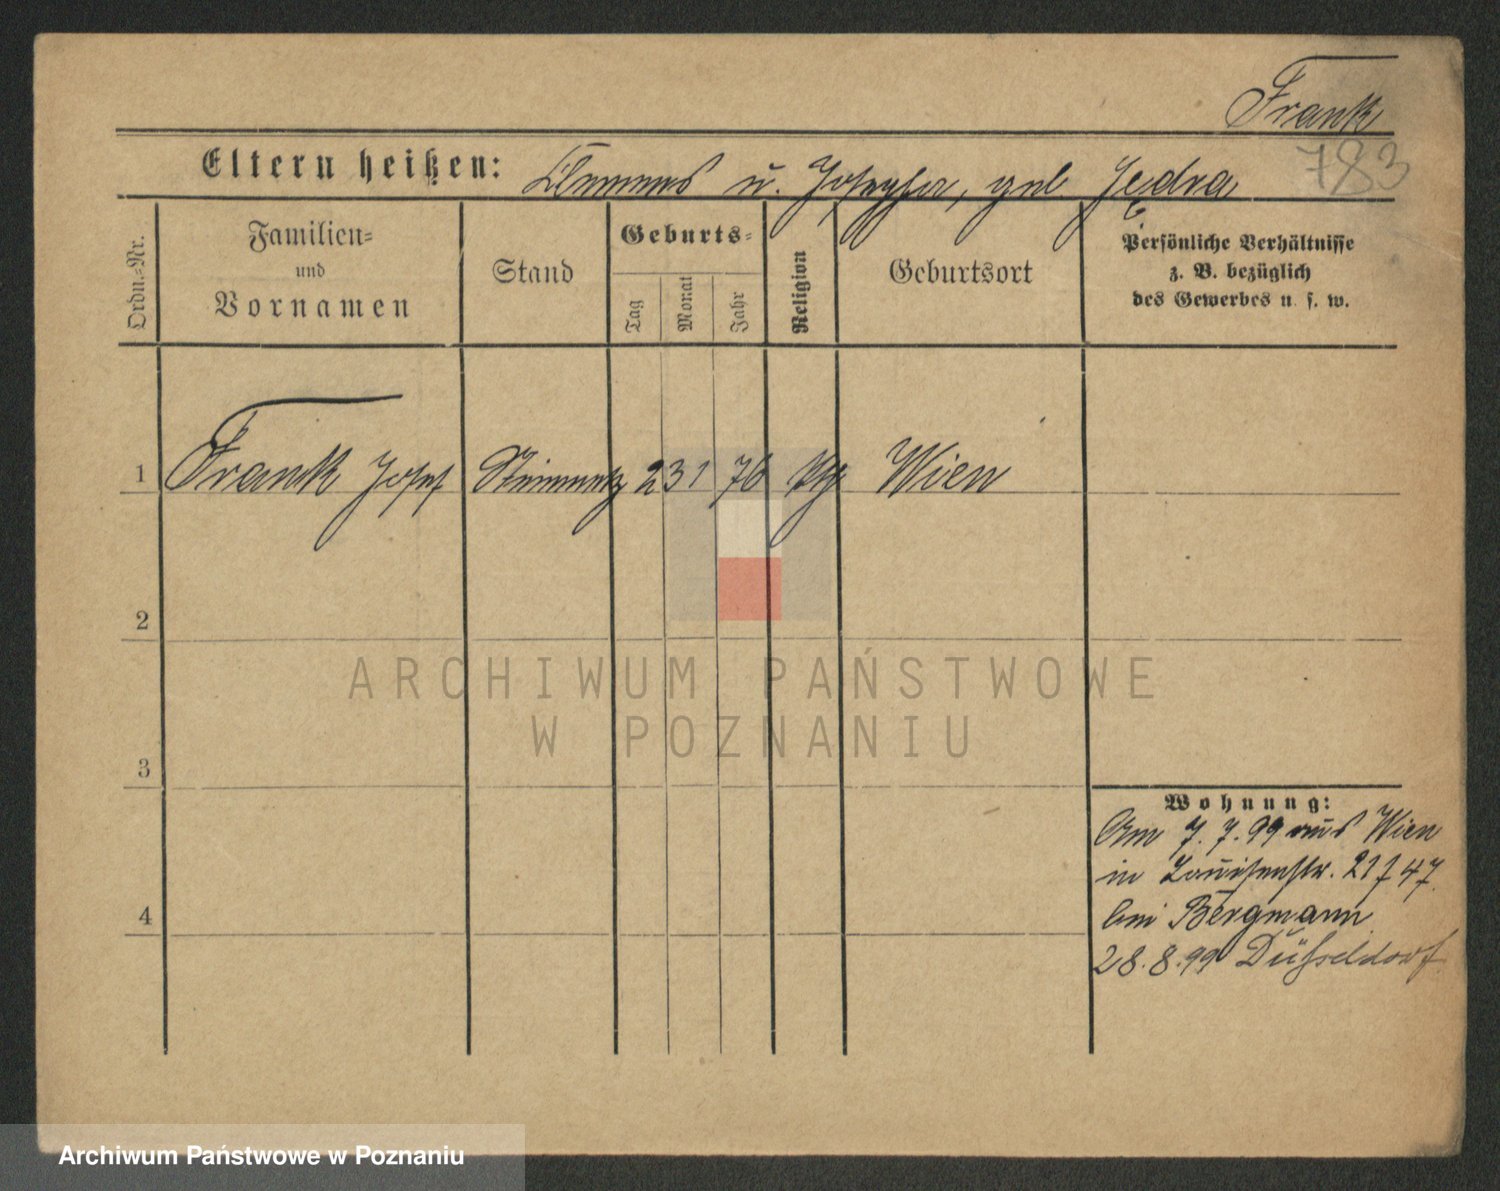 Frank
783
Eltern heißen: Clemens u. Josepha, geb. Jędra
Ordn.-Nr.
Familien-
und
Vornamen
Stand
Geburts-
Tag
Monat
Jahr
Religion
Geburtsort
Persönliche Verhältnisse
z. B. bezüglich
des Gewerbes u. s. w.
1 Frank Josef Steinmetz 23 1 76 kth Wien
2
3
4
Wohnung:
Am 7.7.99 aus Wien
in Louisenstr. 21 f 47.
bei Bergmann
28.8.99 Düsseldorf
ARCHIWUM PAŃSTWOWE
W POZNANIU
Archiwum Państwowe w Poznaniu